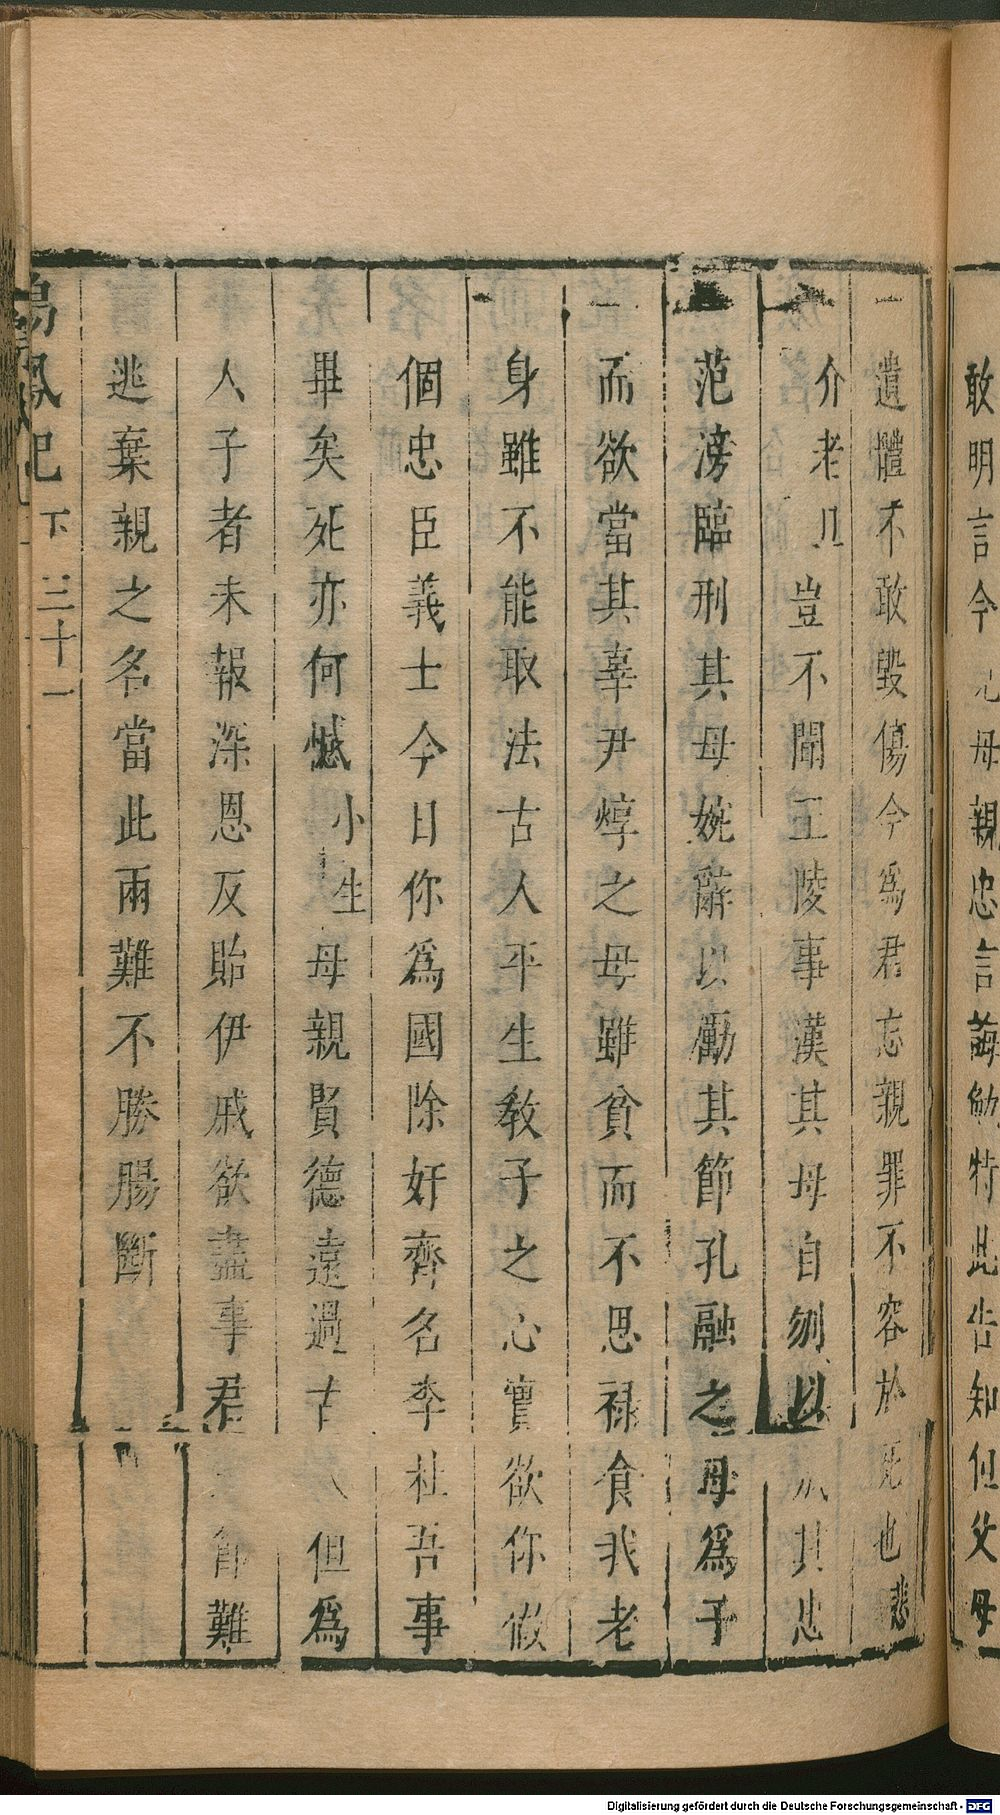 敢明言今 母親忠言誨勉特此告知但父母
遺體不敢毀傷今爲君忘親罪不容於死也悲
介老旦豈不聞王陵事漢其母自刎以成其忠
范滂臨刑其母婉辭以勵其節孔融之母爲子
而欲當其辜尹焞之母雖貧而不思祿食我老
身雖不能取法古人平生教子之心實欲你做
個忠臣義士今日你爲國除奸齊名李杜吾事
畢矣死亦何憾小生母親賢德遠過古人但爲
人子者未報深恩反貽伊戚欲盡事君 節難
逃棄親之名當此兩難不勝腸斷
鳴鳳記 下 三十一
Digitalisierung gefördert durch die Deutsche Forschungsgemeinschaft - DFG